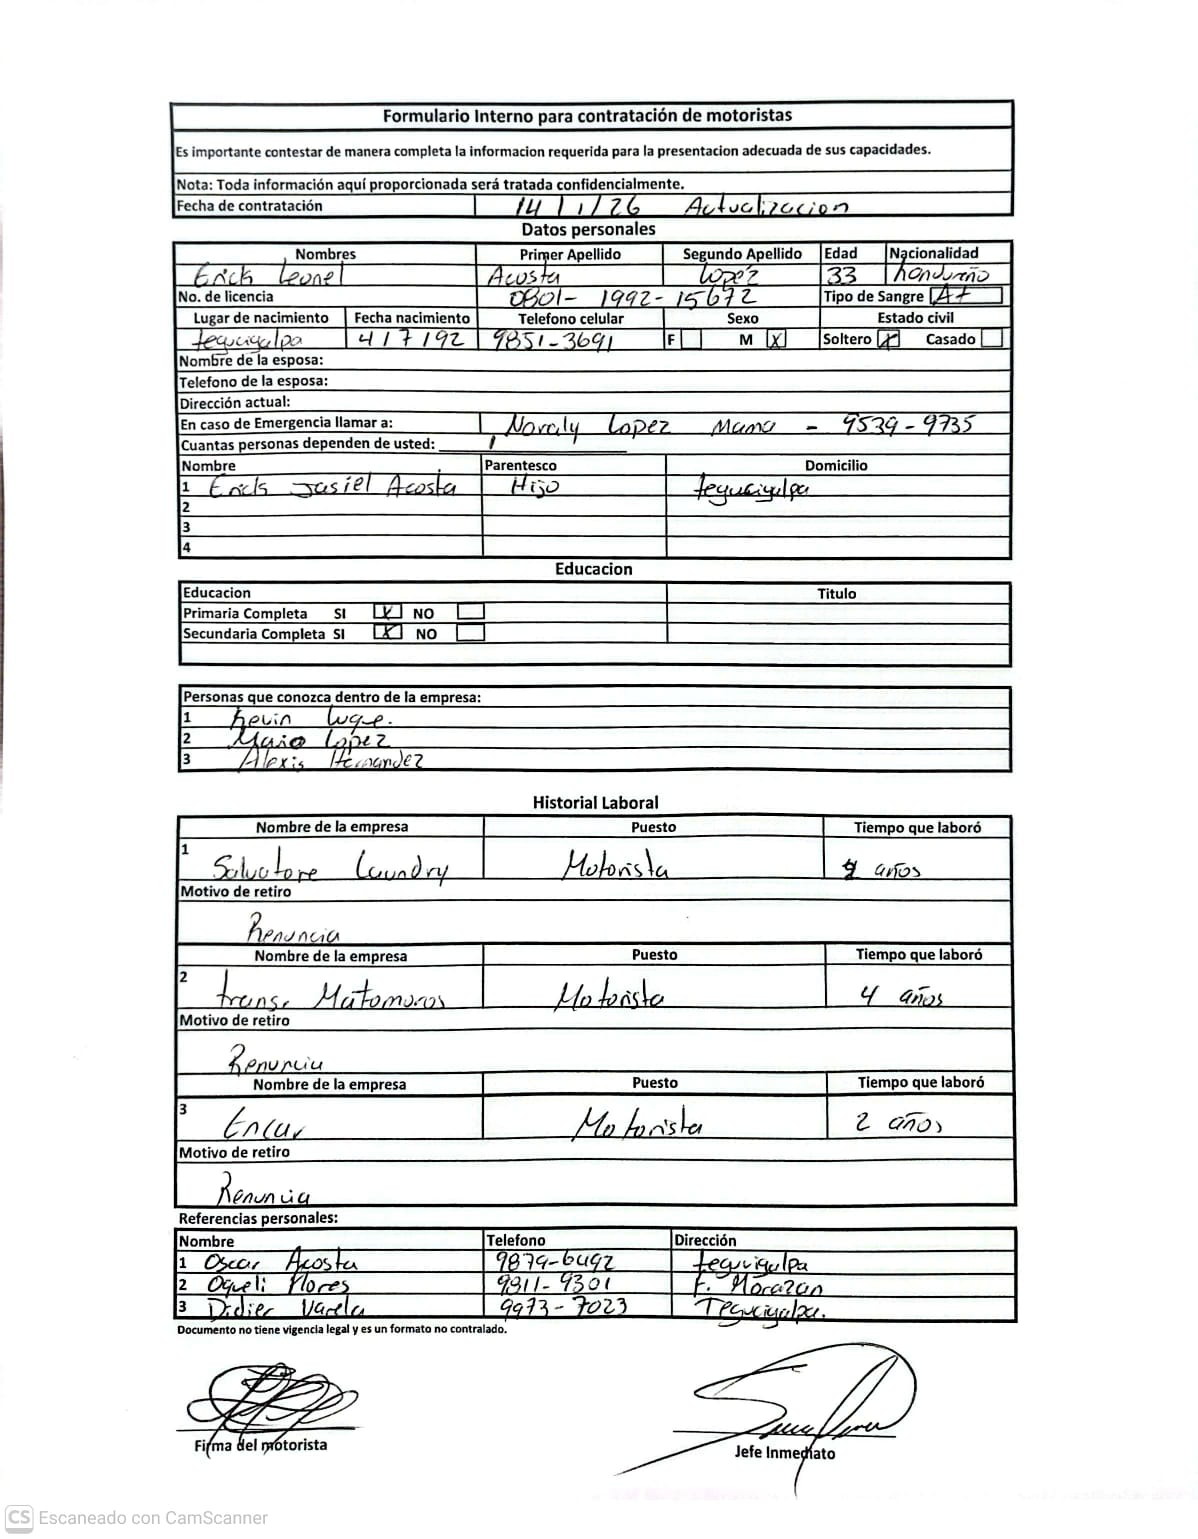 Formulario Interno para contratación de motoristas
Es importante contestar de manera completa la informacion requerida para la presentacion adecuada de sus capacidades.
Nota: Toda información aquí proporcionada será tratada confidencialmente.
Fecha de contratación 14/1/26 Actualizacion
Datos personales
Nombres Primer Apellido Segundo Apellido Edad Nacionalidad
Erick Leonel Acosta Lopez 33 hondureño
No. de licencia 0801- 1992- 15672 Tipo de Sangre A+
Lugar de nacimiento Fecha nacimiento Telefono celular Sexo Estado civil
tegucigalpa 4/7/92 9851-3691 F M X Soltero X Casado
Nombre de la esposa:
Telefono de la esposa:
Dirección actual:
En caso de Emergencia llamar a: Lopez Mama - 9539-9735
Cuantas personas dependen de usted: 1
Nombre Parentesco Domicilio
1 Erick Jasiel Acosta Hijo tegucigalpa
2
3
4
Educacion
Educacion Titulo
Primaria Completa SI X NO
Secundaria Completa SI X NO
Personas que conozca dentro de la empresa:
1 Kevin Luque.
2 Lopez
3 Alexis Hernandez
Historial Laboral
Nombre de la empresa Puesto Tiempo que laboró
1 Salvatore Laundry Motorista años
Motivo de retiro
Renuncia
Nombre de la empresa Puesto Tiempo que laboró
2 trans. Matomoros Motorista 4 años
Motivo de retiro
Renuncia
Nombre de la empresa Puesto Tiempo que laboró
3 Motorista 2 años
Motivo de retiro
Renuncia
Referencias personales:
Nombre Telefono Dirección
1 Oscar Acosta 9879-6492 tegucigalpa
2 Oqueli Flores 9911-9301 F. Morazan
3 Didier Varela 9973-7023 Tegucigalpa.
Documento no tiene vigencia legal y es un formato no contralado.
Firma del motorista Jefe Inmediato
CS Escaneado con CamScanner